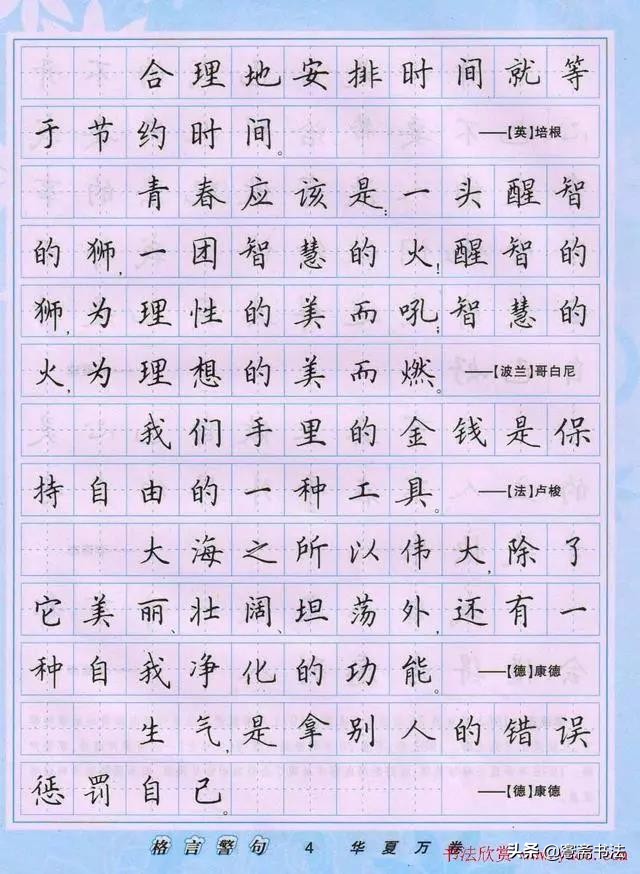 合理地安排时间就等
于节约时间。 ——【英】培根
青春应该是：一头醒智
的狮，一团智慧的火！醒智的
狮，为理性的美而吼；智慧的
火，为理想的美而燃。 ——【波兰】哥白尼
我们手里的金钱是保
持自由的一种工具。 ——【法】卢梭
大海之所以伟大，除了
它美丽、壮阔、坦荡外，还有一
种自我净化的功能。 ——【德】康德
生气，是拿别人的错误
惩罚自己。 ——【德】康德
格言警句 4 华夏万卷
书法欣赏
头条@窵斋书法